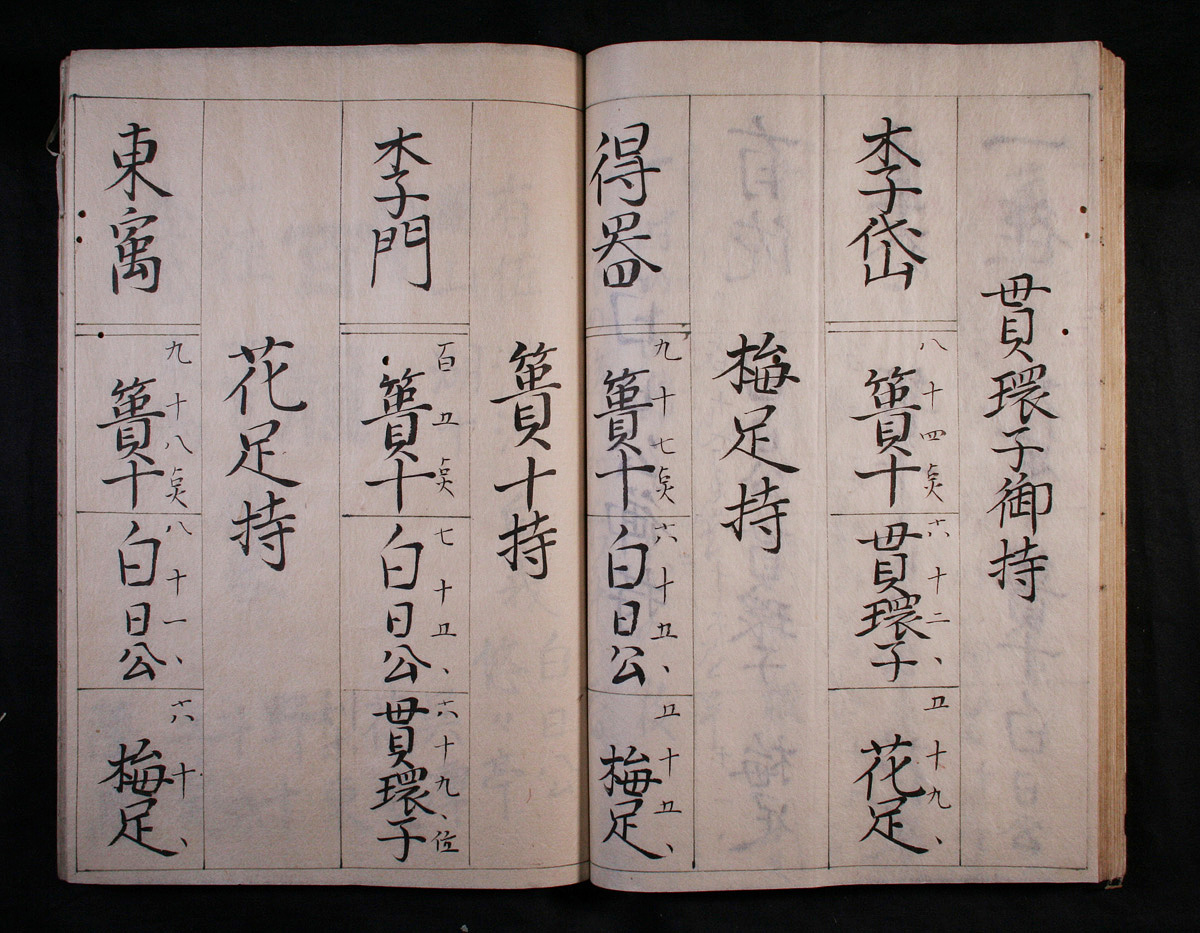 貫環子御持
李岱
八十四点
簣十
六十二、
貫環子
五十九、
花足
梅足持
得器
九十七点
簣十
六十五、
白日公
五十五、
梅足
簣十持
李門
百五点
簣十
七十五、
白日公
六十九、位
貫環子
花足持
東寓
九十八点
簣十
八十一、
白日公
六十八、
梅足